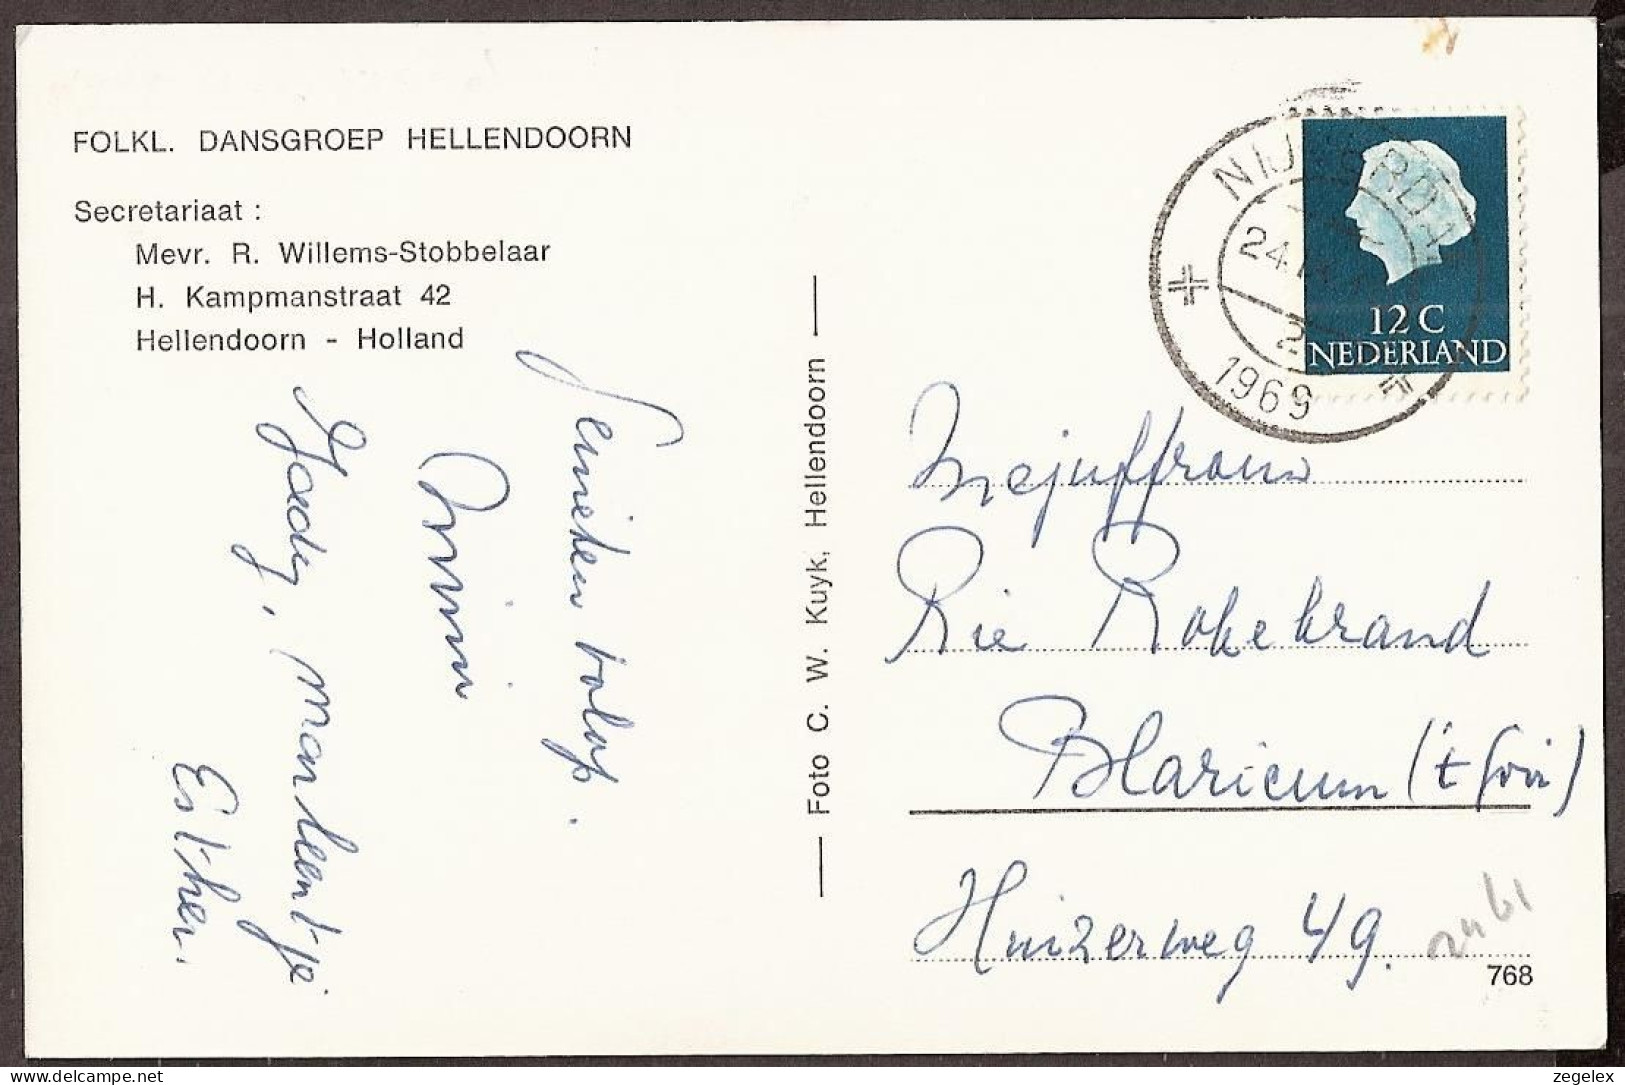 FOLKL. DANSGROEP HELLENDOORN
Secretariaat :
Mevr. R. Willems-Stobbelaar
H. Kampmanstraat 42
Hellendoorn - Holland
Genieten volop.
Marleentje
Esther.
Foto C. W. Kuyk, Hellendoorn
NIJVERDAL
24
2
1969
12 C
NEDERLAND
Mejuffrouw
Rie Rokebrand
Blaricum ('t Gooi)
Huizerweg 49.
768
zegelex